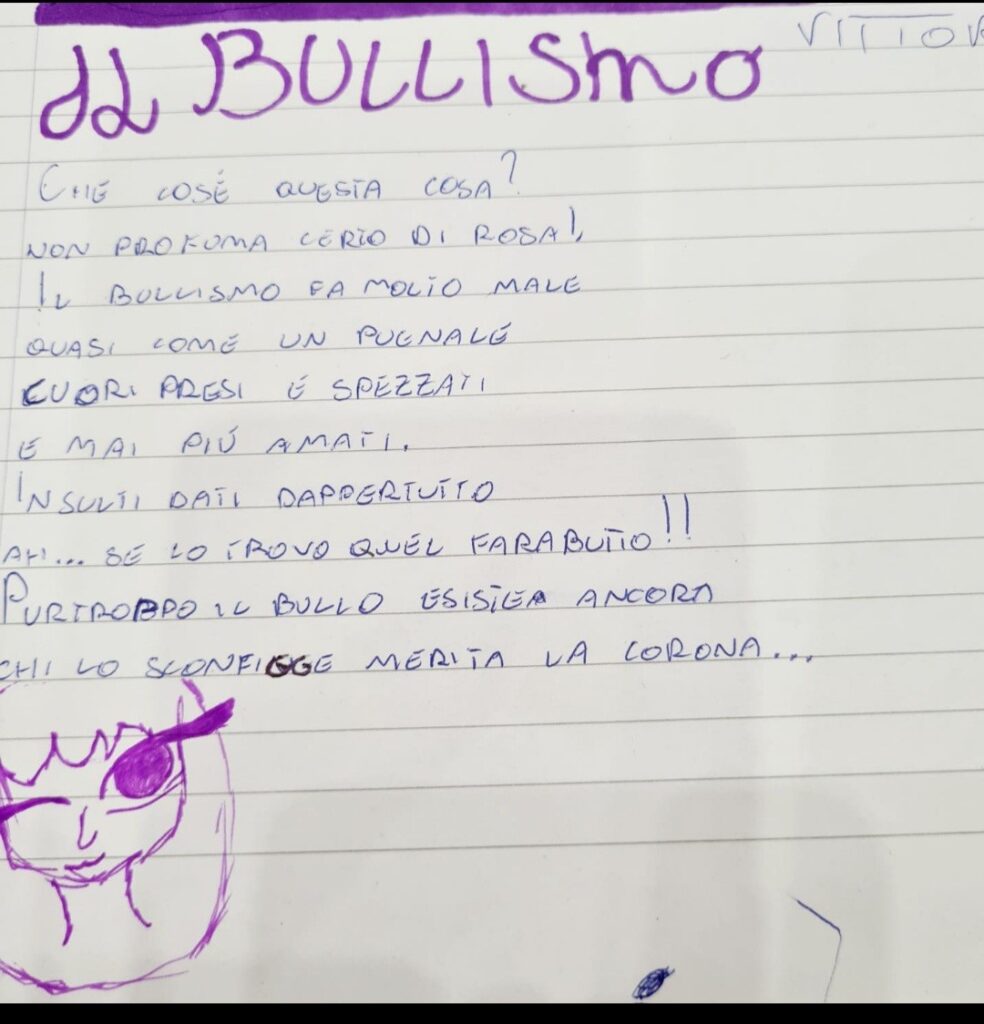 Il BULLISmo
VITTIOR
CHE COSÉ QUESTA COSA?
NON PROFUMA CERTO DI ROSA!,
IL BULLISMO FA MOLTO MALE
QUASI COME UN PUGNALE
CUORI PRESI E SPEZZATI
E MAI PIÚ AMATI.
INSULTI DATI DAPPERTUTTO
AH... SE LO TROVO QUEL FARABUTTO!!
PURTROPPO IL BULLO ESISTEA ANCORA
CHI LO SCONFIGGE MERITA LA CORONA...